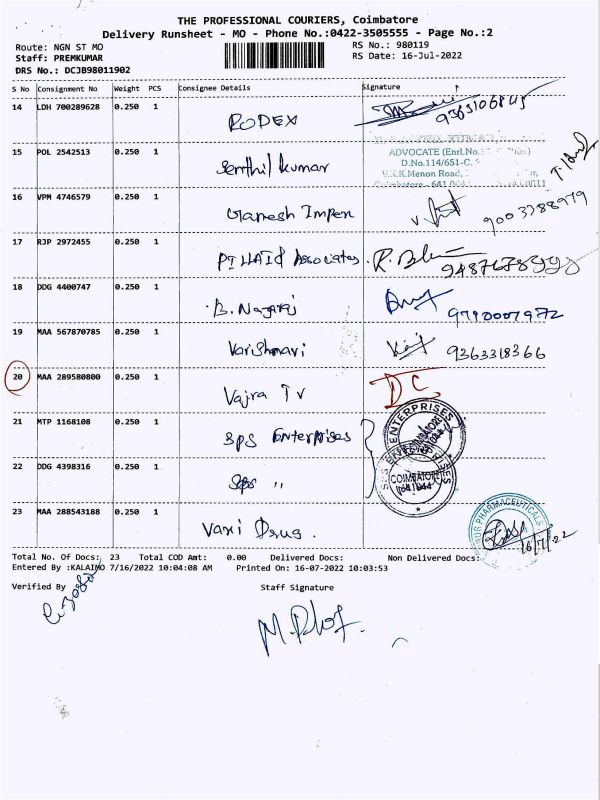 THE PROFESSIONAL COURIERS, Coimbatore
Delivery Runsheet - MO - Phone No.:0422-3505555 - Page No.:2
Route: NGN ST MO
RS No.: 980119
Staff: PREMKUMAR
RS Date: 16-Jul-2022
DRS No.: DCJB98011902
S No Consignment No Weight PCS Consignee Details Signature
14 LDH 700289628 0.250 1 RODEX
15 POL 2542513 0.250 1 Senthil kumar
ADVOCATE (Enrl.No.
D.No.114/651-C,
V.K.K.Menon Road,
16 VPM 4746579 0.250 1 Ganesh Impex 9003788979
17 RJP 2972455 0.250 1 Associates.
18 DDG 4400747 0.250 1 B. Nagaraj 9790007972
19 MAA 567870785 0.250 1 Varishnavi 9363318366
20 MAA 289580800 0.250 1 Vajra Tv DC
21 MTP 1168108 0.250 1 SPS Enterprises
ENTERPRISES
22 DDG 4398316 0.250 1 SPS "
COIMBATORE
641044
23 MAA 288543188 0.250 1 Drug.
PHARMACEUTICALS
16/7/22
Total No. Of Docs: 23 Total COD Amt: 0.00 Delivered Docs: Non Delivered Docs:
Entered By :KALAIMO 7/16/2022 10:04:08 AM Printed On: 16-07-2022 10:03:53
Verified By Staff Signature